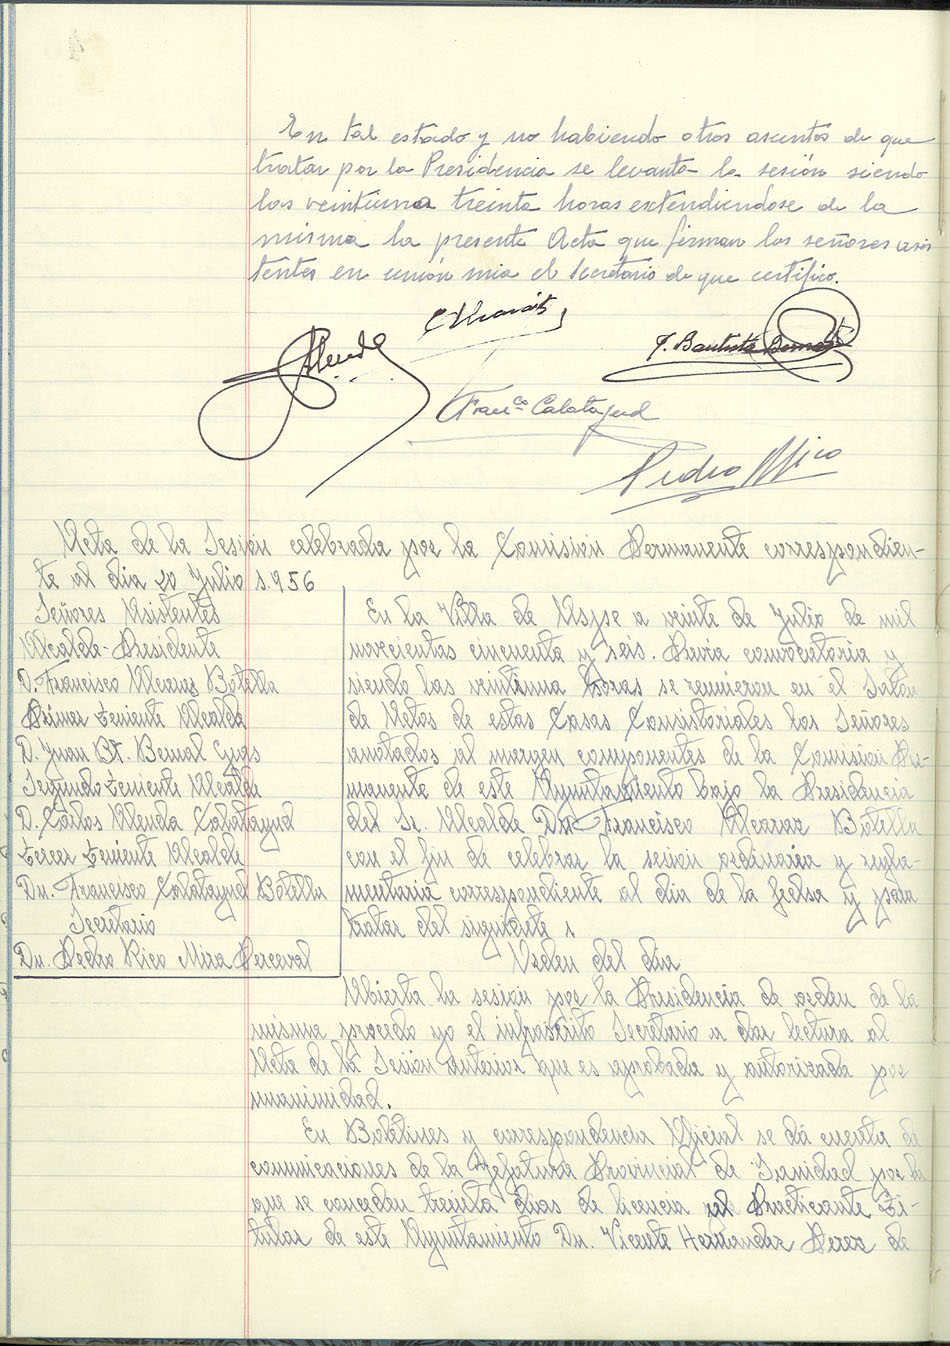 En tal estado y no habiendo otros asuntos de que
tratar por la Presidencia se levanta la sesión siendo
las veintiuna treinta horas extendiendose de la
misma la presente Acta que firman los señores asis
tentes en unión mia el Secretario de que certifico.
J. Bautista Bernal
Franco Calatayud
Pedro Rico
Acta de la Sesión celebrada por la Comision Permanente correspondien-
te al dia 20 Julio 1.956
Señores Asistentes
Alcalde-Presidente
D. Francisco Alcaraz Botella
Primer Teniente Alcalde
D. Juan Bt. Bernal Cugs
Segundo Teniente Alcalde
D. Carlos Alenda Calatayud
Tercer Teniente Alcalde
Dn. Francisco Calatayud Botella
Secretario
Dn. Pedro Rico Mira Perceval
En la Villa de Aspe a veinte de Julio de mil
novecientos cincuenta y seis. Previa convocatoria y
siendo las veintiuna horas se reunieron en el Salón
de Actos de estas Casas Consistoriales los Señores
anotados al margen componentes de la Comisión Per-
manente de este Ayuntamiento bajo la Presidencia
del Sr. Alcalde Dn. Francisco Alcaraz Botella
con el fin de celebrar la sesion ordinaria y regla-
mentaria correspondiente al dia de la fecha y para
tratar del siguiente :
Orden del dia
Abierta la sesion por la Presidencia de orden de la
misma procedo yo el infrascrito Secretario a dar lectura al
Acta de la Sesión anterior que es aprobada y autorizada por
unanimidad.
En Boletines y correspondencia Oficial se dá cuenta de
comunicaciones de la Jefatura Provincial de Sanidad por la
que se conceden treinta dias de licencia al Practicante Ti-
tular de este Ayuntamiento Dn. Vicente Hernandez Perez de